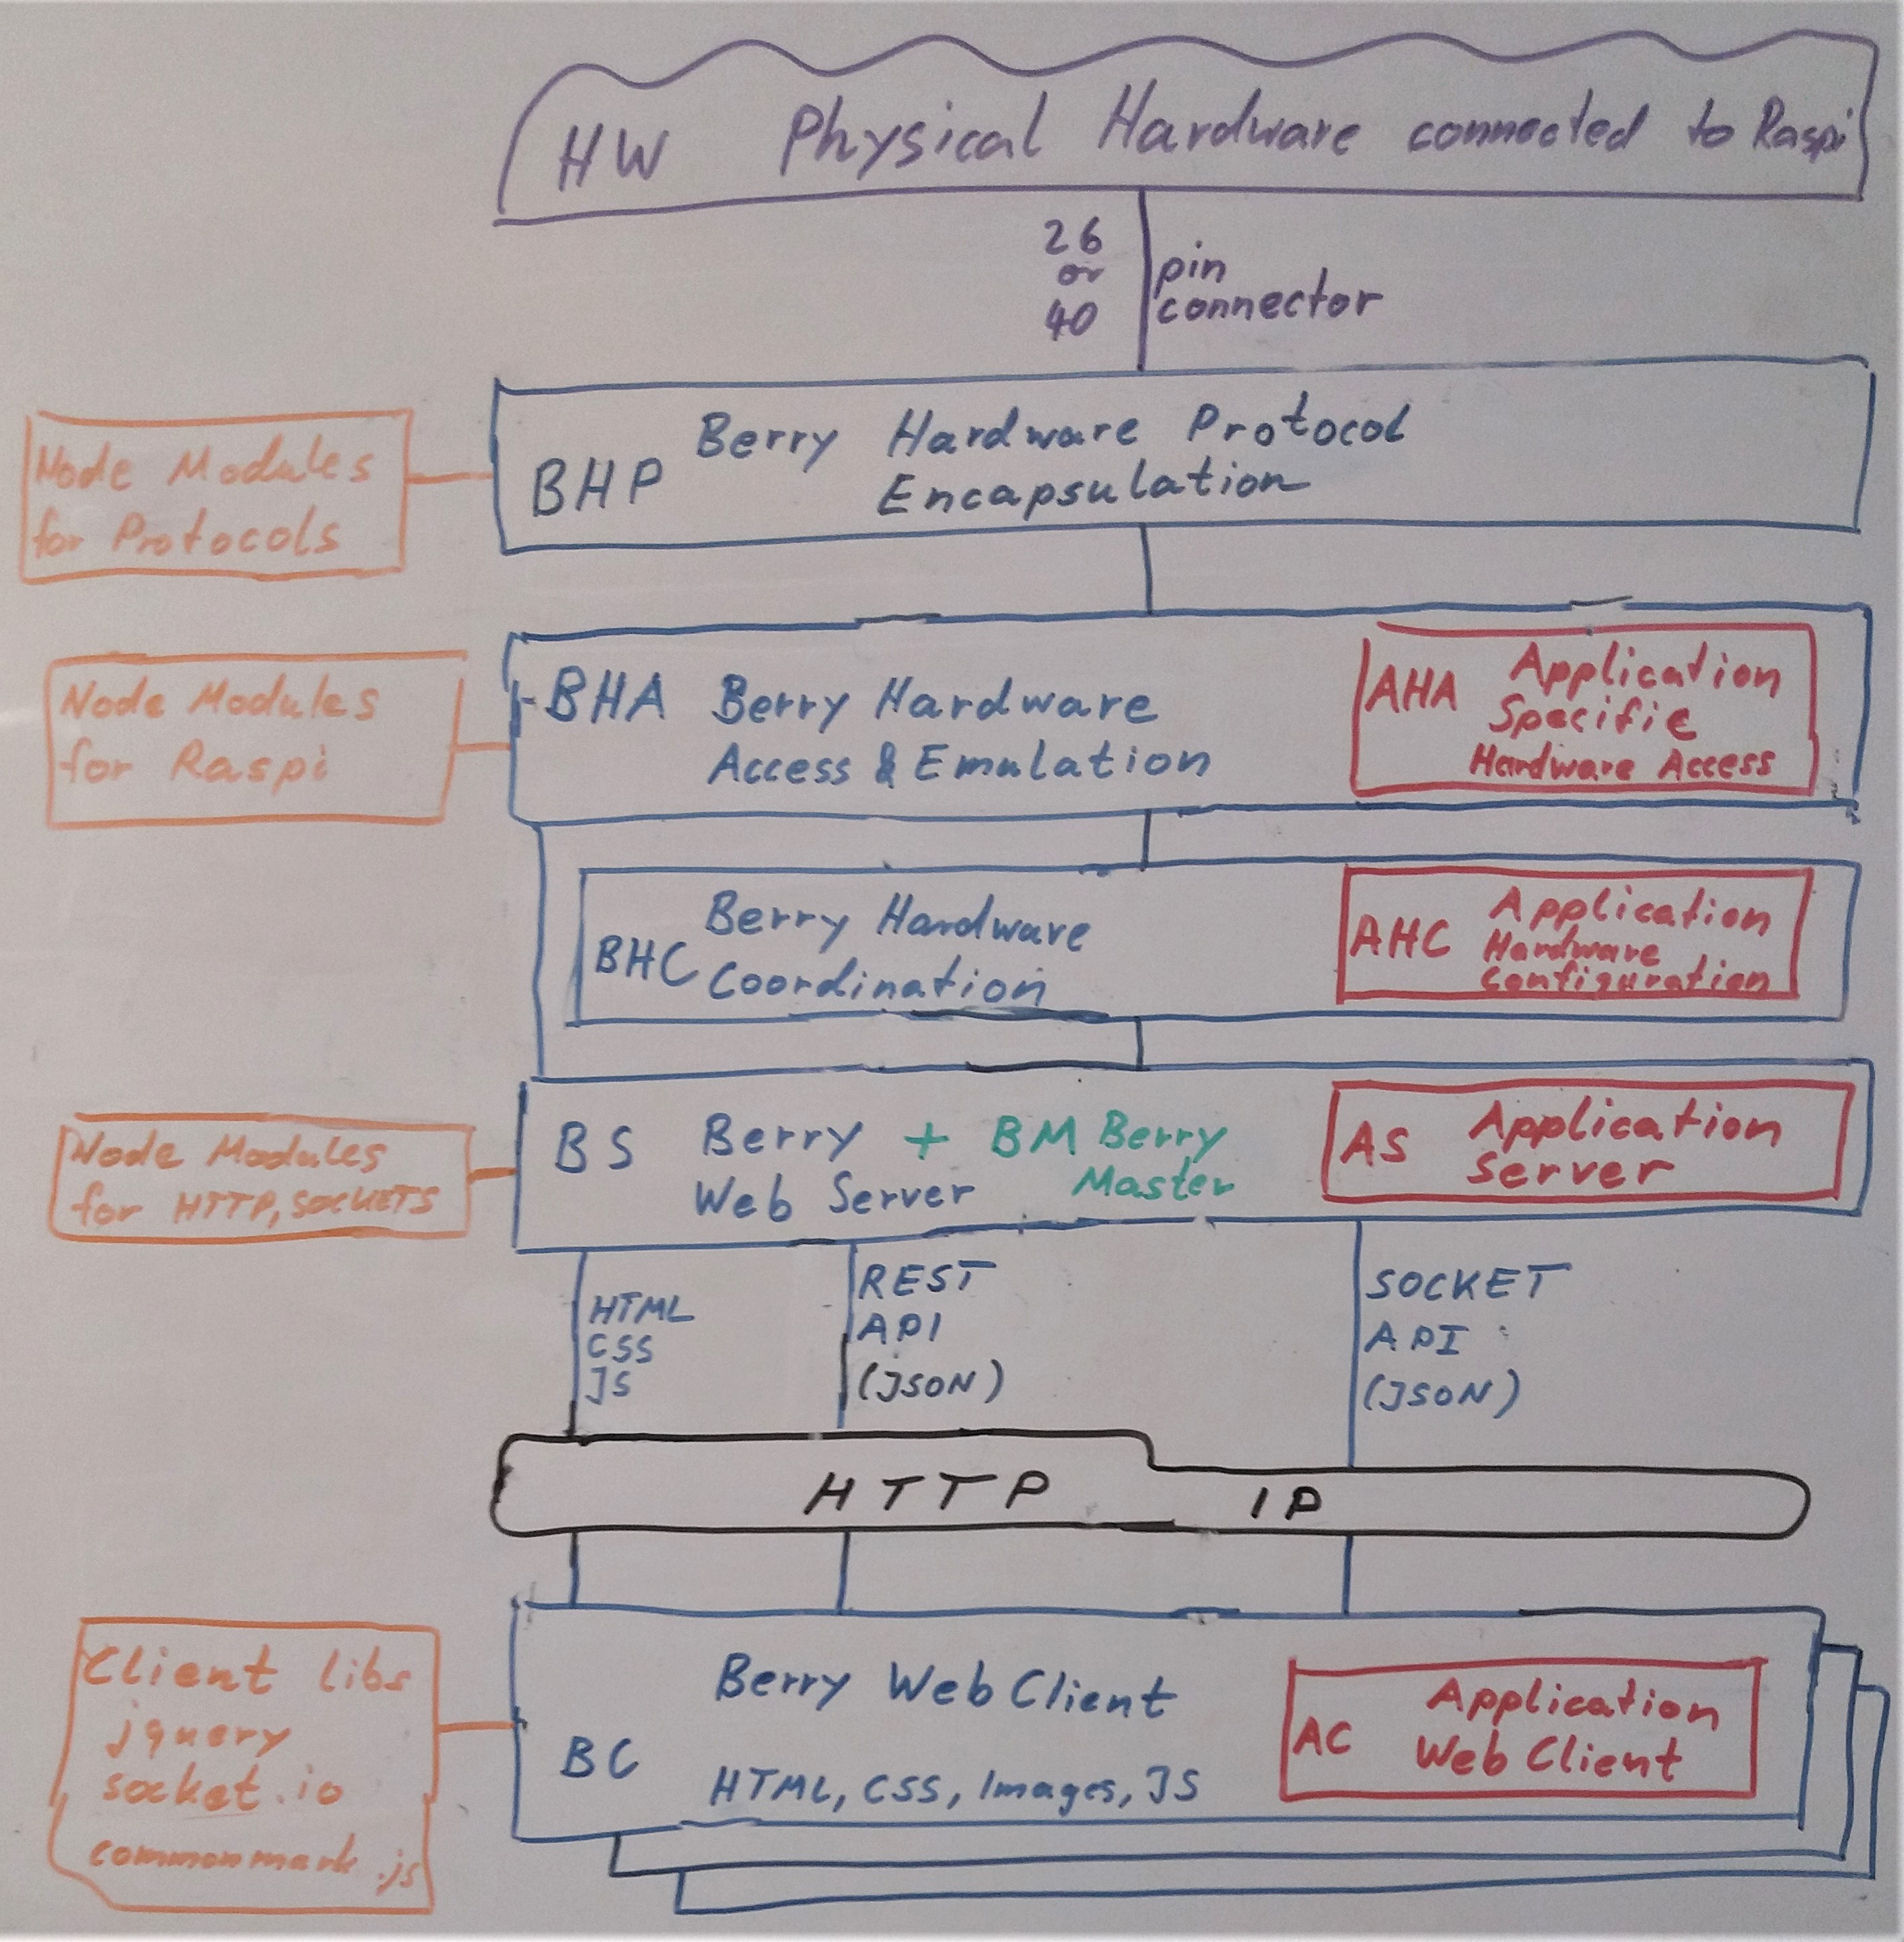 HW Physical Hardware connected to Raspi
26
or
40
pin
connector
Node Modules
for Protocols
BHP
Berry Hardware Protocol
Encapsulation
Node Modules
for Raspi
BHA Berry Hardware
Access & Emulation
AHA
Application
Specific
Hardware Access
BHC
Berry Hardware
Coordination
AHC
Application
Hardware
Configuration
Node Modules
for HTTP, SOCKETS
BS Berry + BM Berry
Web Server Master
AS
Application
Server
HTML
CSS
JS
REST
API
(JSON)
SOCKET
API
(JSON)
HTTP IP
Client libs
jquery
socket.io
commonmark.js
BC
Berry Web Client
HTML, CSS, Images, JS
AC
Application
Web Client